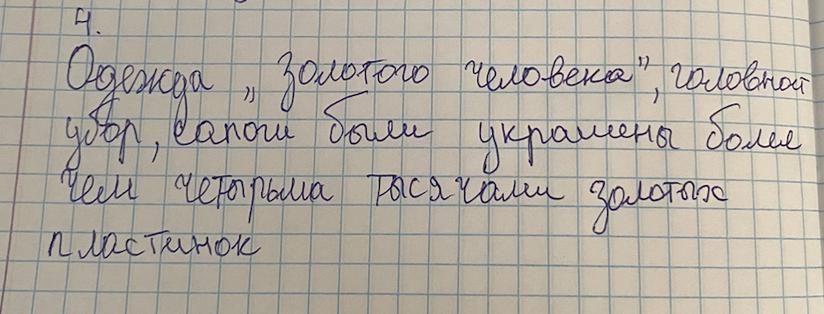 4.
Одежда „золотого человека", головной
убор, сапоги были украшены более
чем четырьма тысячами золотых
пластинок